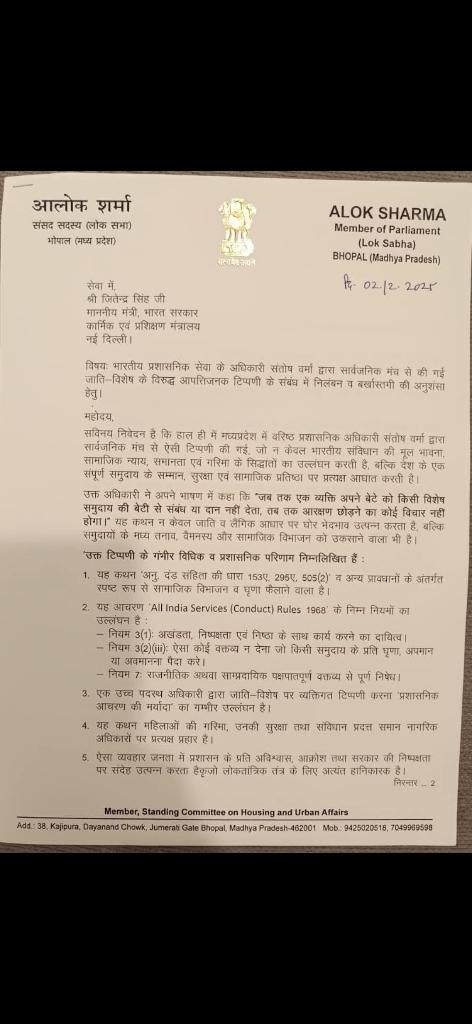 आलोक शर्मा
संसद सदस्य (लोक सभा)
भोपाल (मध्य प्रदेश)
सत्यमेव जयते
ALOK SHARMA
Member of Parliament
(Lok Sabha)
BHOPAL (Madhya Pradesh)
02/2.2025
सेवा में,
श्री जितेन्द्र सिंह जी
माननीय मंत्री, भारत सरकार
कार्मिक एवं प्रशिक्षण मंत्रालय
नई दिल्ली।
विषयः भारतीय प्रशासनिक सेवा के अधिकारी संतोष वर्मा द्वारा सार्वजनिक मंच से की गई
जाति–विशेष के विरुद्ध आपत्तिजनक टिप्पणी के संबंध में निलंबन व बर्खास्तगी की अनुशंसा
हेतु।
महोदय,
सविनय निवेदन है कि हाल ही में मध्यप्रदेश में वरिष्ठ प्रशासनिक अधिकारी संतोष वर्मा द्वारा
सार्वजनिक मंच से ऐसी टिप्पणी की गई, जो न केवल भारतीय संविधान की मूल भावना,
सामाजिक न्याय, समानता एवं गरिमा के सिद्धांतों का उल्लंघन करती है, बल्कि देश के एक
संपूर्ण समुदाय के सम्मान, सुरक्षा एवं सामाजिक प्रतिष्ठा पर प्रत्यक्ष आघात करती है।
उक्त अधिकारी ने अपने भाषण में कहा कि "जब तक एक व्यक्ति अपने बेटे को किसी विशेष
समुदाय की बेटी से संबंध या दान नहीं देता, तब तक आरक्षण छोड़ने का कोई विचार नहीं
होगा।" यह कथन न केवल जाति व लैंगिक आधार पर घोर भेदभाव उत्पन्न करता है, बल्कि
समुदायों के मध्य तनाव, वैमनस्य और सामाजिक विभाजन को उकसाने वाला भी है।
'उक्त टिप्पणी के गंभीर विधिक व प्रशासनिक परिणाम निम्नलिखित हैं :
1. यह कथन 'अनु. दंड संहिता की धारा 153ए, 295ए, 505(2)' व अन्य प्रावधानों के अंतर्गत
स्पष्ट रूप से सामाजिक विभाजन व घृणा फैलाने वाला है।
2. यह आचरण 'All India Services (Conduct) Rules 1968' के निम्न नियमों का
उल्लंघन है :
– नियम 3(1): अखंडता, निष्पक्षता एवं निष्ठा के साथ कार्य करने का दायित्व।
– नियम 3(2)(iii): ऐसा कोई वक्तव्य न देना जो किसी समुदाय के प्रति घृणा, अपमान
या अवमानना पैदा करे।
– नियम 7: राजनीतिक अथवा साम्प्रदायिक पक्षपातपूर्ण वक्तव्य से पूर्ण निषेध।
3. एक उच्च पदस्थ अधिकारी द्वारा जाति–विशेष पर व्यक्तिगत टिप्पणी करना 'प्रशासनिक
आचरण की मर्यादा' का गम्भीर उल्लंघन है।
4. यह कथन महिलाओं की गरिमा, उनकी सुरक्षा तथा संविधान प्रदत्त समान नागरिक
अधिकारों पर प्रत्यक्ष प्रहार है।
5. ऐसा व्यवहार जनता में प्रशासन के प्रति अविश्वास, आक्रोश तथा सरकार की निष्पक्षता
पर संदेह उत्पन्न करता हैकृजो लोकतांत्रिक तंत्र के लिए अत्यंत हानिकारक है।
निरन्तर .. 2
Member, Standing Committee on Housing and Urban Affairs
Add.: 38, Kajipura, Dayanand Chowk, Jumerati Gate Bhopal, Madhya Pradesh-462001 Mob.: 9425020518, 7049969598